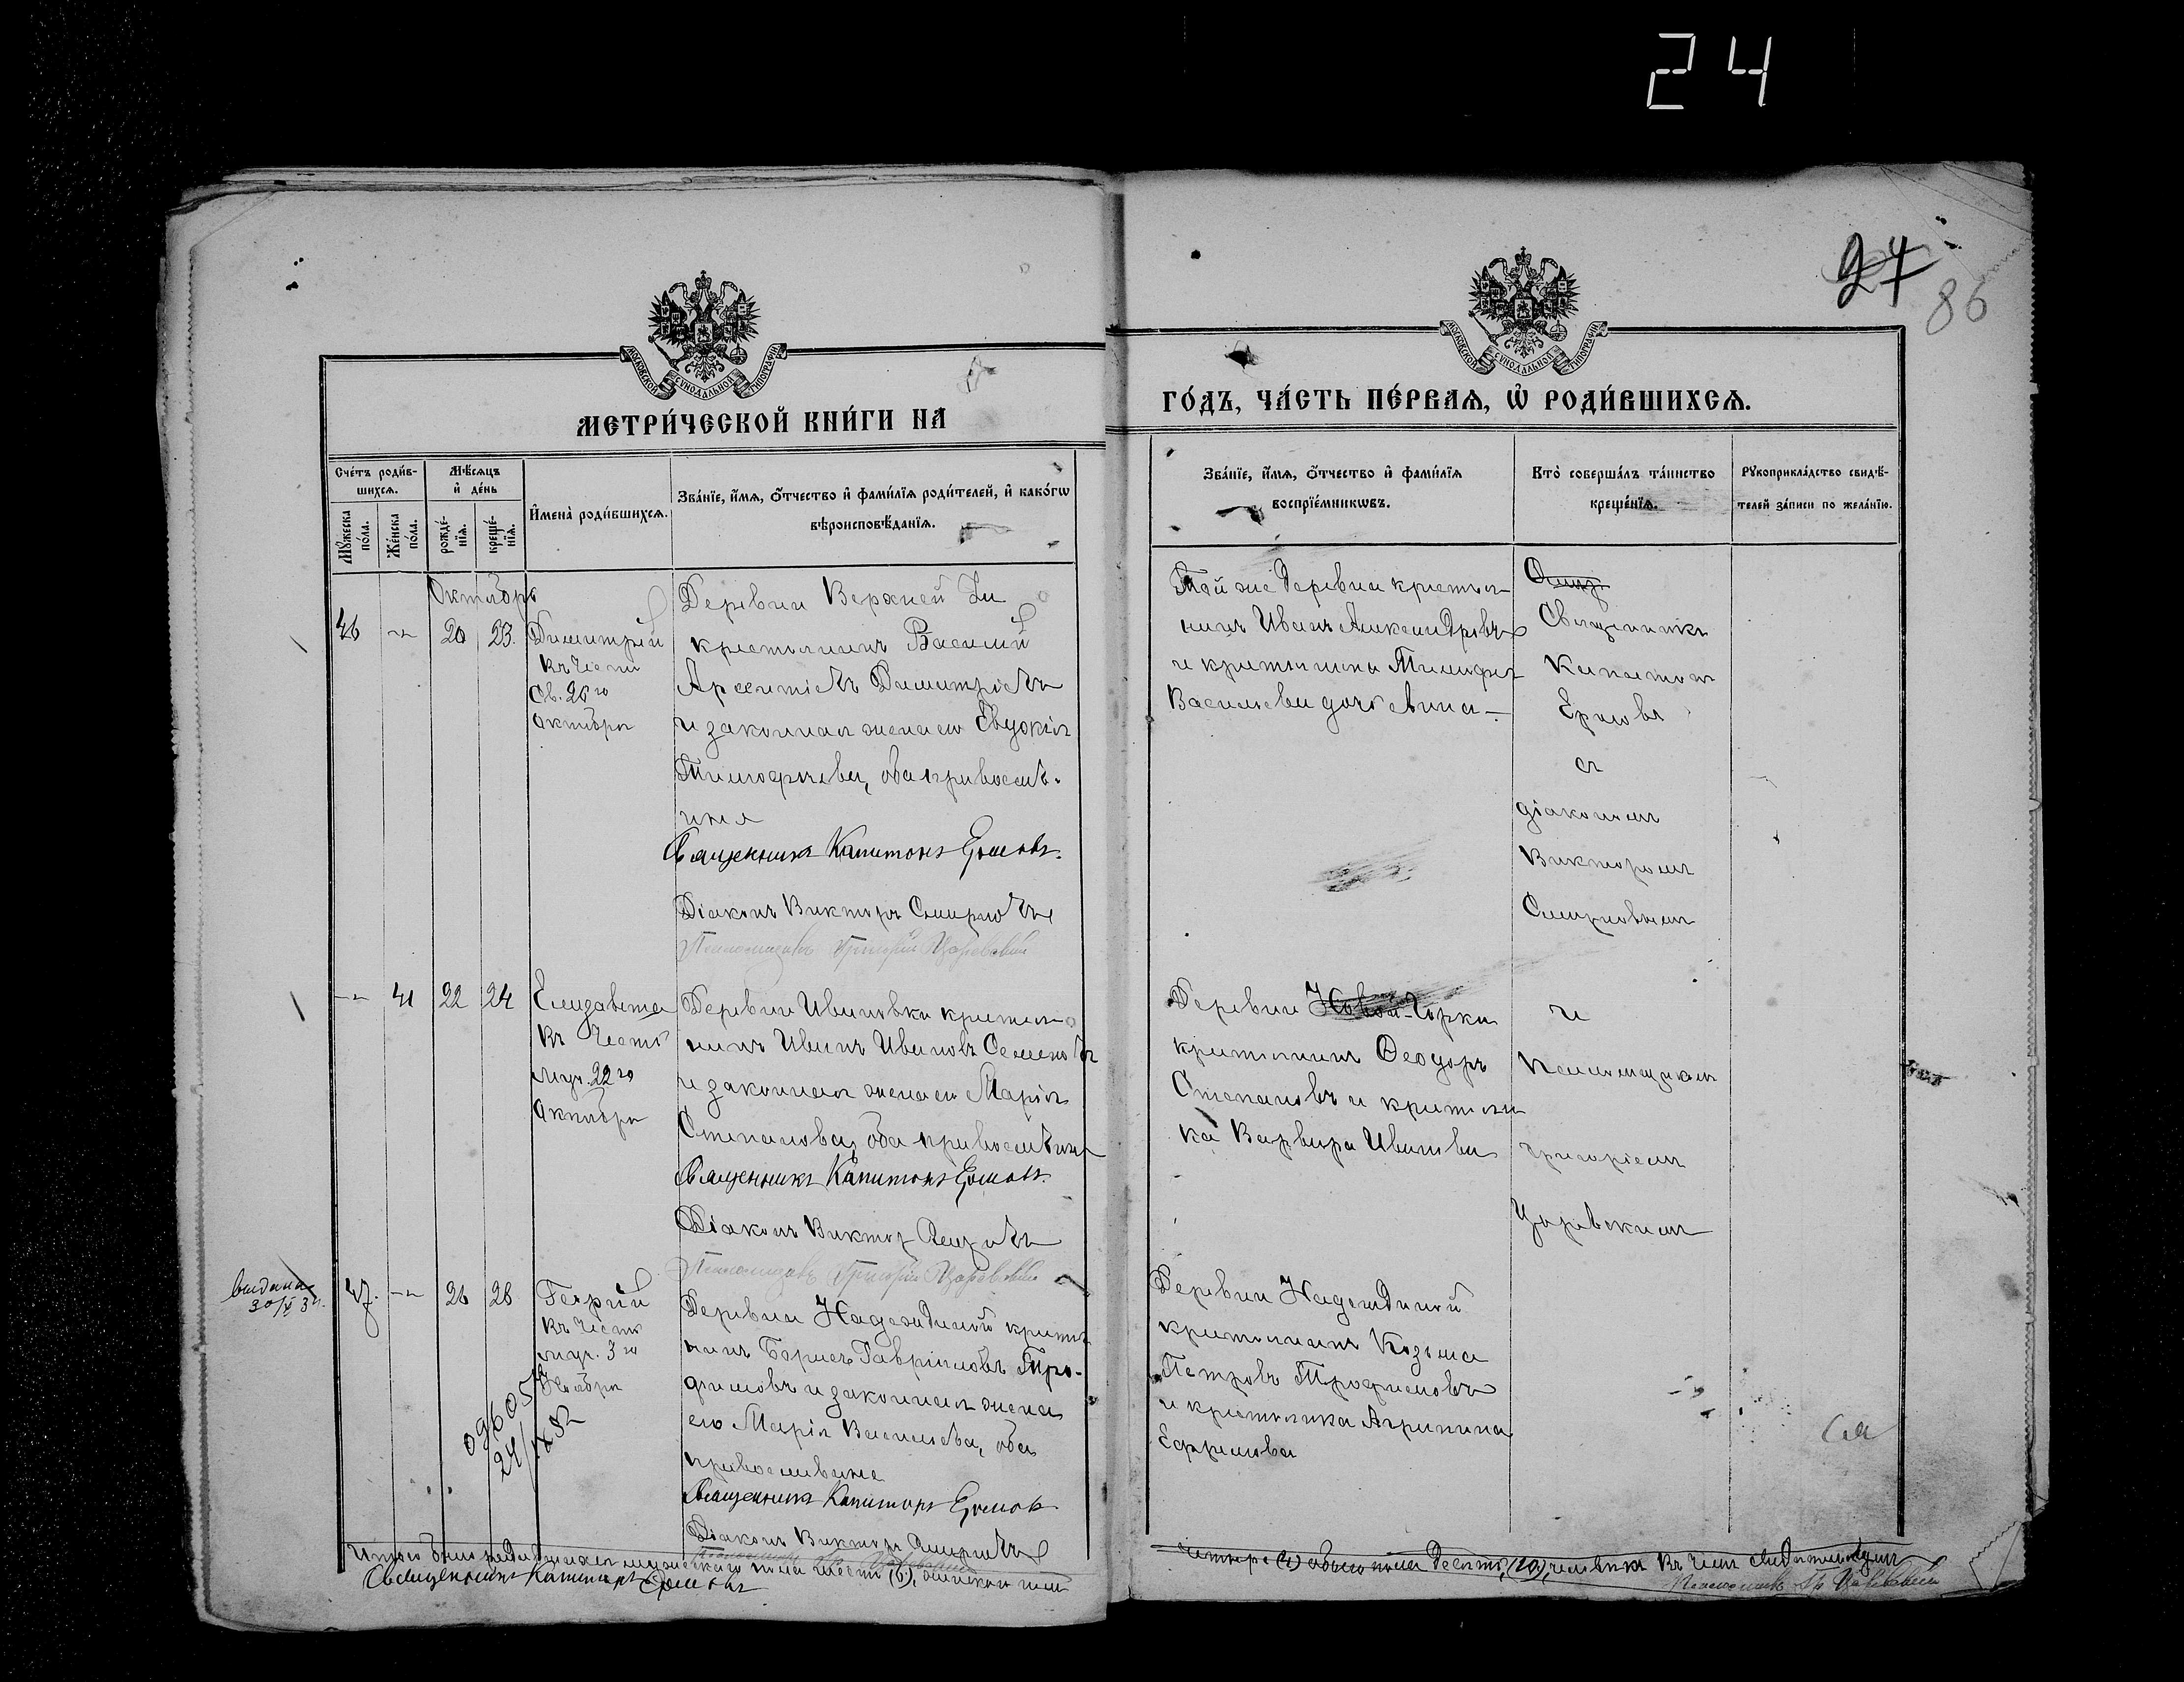 24
27
86
МОСКОВСКОЙ СѴНОДАЛЬНОЙ ТИПОГРАФІИ
МОСКОВСКОЙ СѴНОДАЛЬНОЙ ТИПОГРАФІИ
МЕТРИ́ЧЕСКОЙ КНИ́ГИ НА
ГО́ДЪ, ЧА́СТЬ ПЕ́РВАѦ, Ѡ҆ РОДИ́ВШИХСѦ.
Сче́тъ роди́в-
шихсѧ.
Мѣ́сѧцъ
и҆ де́нь
Мꙋ́жеска
по́ла.
Же́нска
по́ла.
рожде́-
нїѧ.
креще́-
нїѧ.
И҆мена̀ роди́вшихсѧ.
Зва́нїе, и҆́мѧ, ѻ҆́тчество и҆ фами́лїѧ роди́телей, и҆ како́гѡ
вѣроисповѣ́данїѧ.
Зва́нїе, и҆́мѧ, ѻ҆́тчество и҆ фами́лїѧ
воспрїе́мникѡвъ.
Кто̀ соверша́лъ та́инство
креще́нїѧ.
Рꙋкоприкла́дство свидѣ́-
телей за́писи по жела́нїю.
Октябрь
46 20 23. Димитрій
Въ честь
Св. 26го
Октября
Деревни Верхней
крестьянинъ Василій
Арсентіевъ Димитріевъ
и законная жена его Евдокія
Тимофеева, оба православ-
ные
Священникъ Капитонъ Ермовъ.
Діаконъ Викторъ Смирновъ
Псаломщикъ Григорій Царевскій
Той же деревни крестья-
нинъ Иванъ Александровъ
и крестьянка
Васильева дочь девица
Священникъ
Капитонъ
Ермовъ
съ
діакономъ
Викторомъ
Смирновымъ
41 22 24 Елизавета
Въ честь
муч. 22го
Октября
Деревни Ивановки крестья-
нинъ Иванъ Ивановъ Семеновъ
и законная жена его Марія
Степанова, оба православные
Священникъ Капитонъ Ермовъ.
Діаконъ Викторъ Смирновъ
Псаломщикъ Григорій Царевскій
Деревни Новой-Горки
крестьянинъ Ѳеодоръ
Степановъ и крестьян-
ка Варвара Иванова
и
псаломщикомъ
Григоріемъ
Царевскимъ
выдана
47. 26 28 Георгій
Въ честь
муч. 3го
Ноября
Деревни Надеждиной крестья-
нинъ Борисъ Гавріиловъ Тро-
фимовъ и законная жена
его Марія Васильева, оба
православные
Священникъ Капитонъ Ермовъ
Діаконъ Викторъ Смирновъ
Деревни Надеждиной
крестьянинъ Козьма
Петровъ Трофимовъ
и крестьянка Агрипина
Ефремова
Итого было родившихся мужескаго пола шесть (6), женскаго пола
четыре (4) обоего пола десять, (10), человѣкъ въ чемъ свидѣтельствуемъ
Священникъ Капитонъ Ермовъ
Псаломщикъ Гр. Царевскій